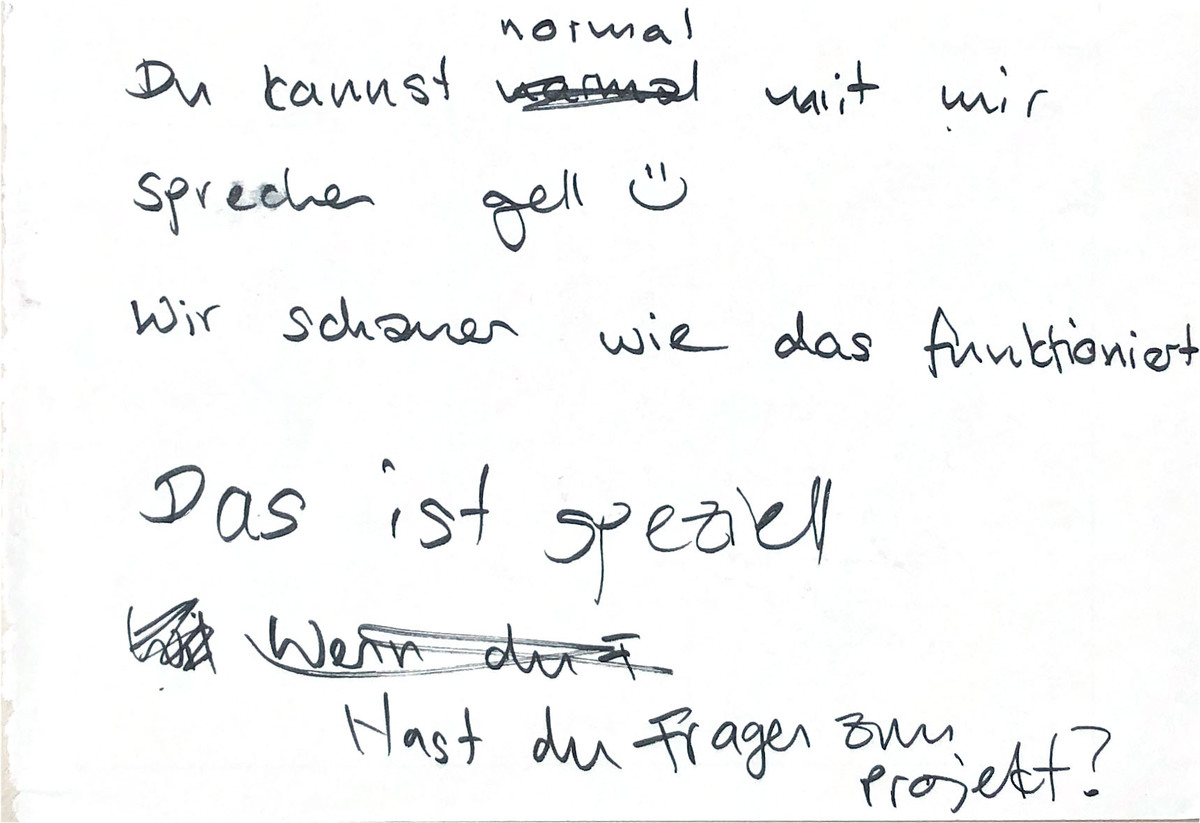 normal
Du kannst normal mit mir
sprechen gell
Wir schauen wie das funktioniert
Das ist speziell
Wenn du F
Hast du Fragen zum
projekt?